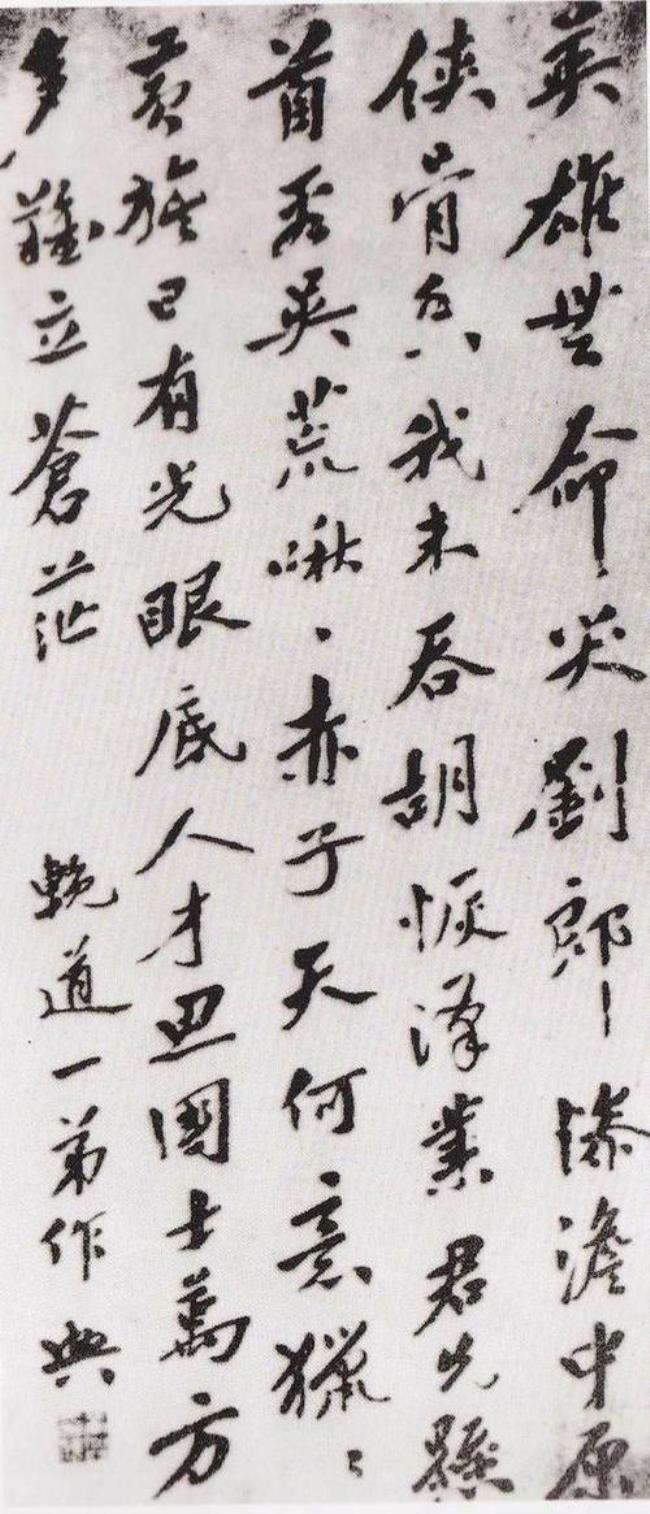 英雄無命哭劉郎慘澹中原
俠骨香我未吞胡恢漢業君先懸
首看吳荒啾、赤子天何意獵々
黃旗日有光眼底人才思國士萬方
多難立蒼茫 輓道一弟作 興